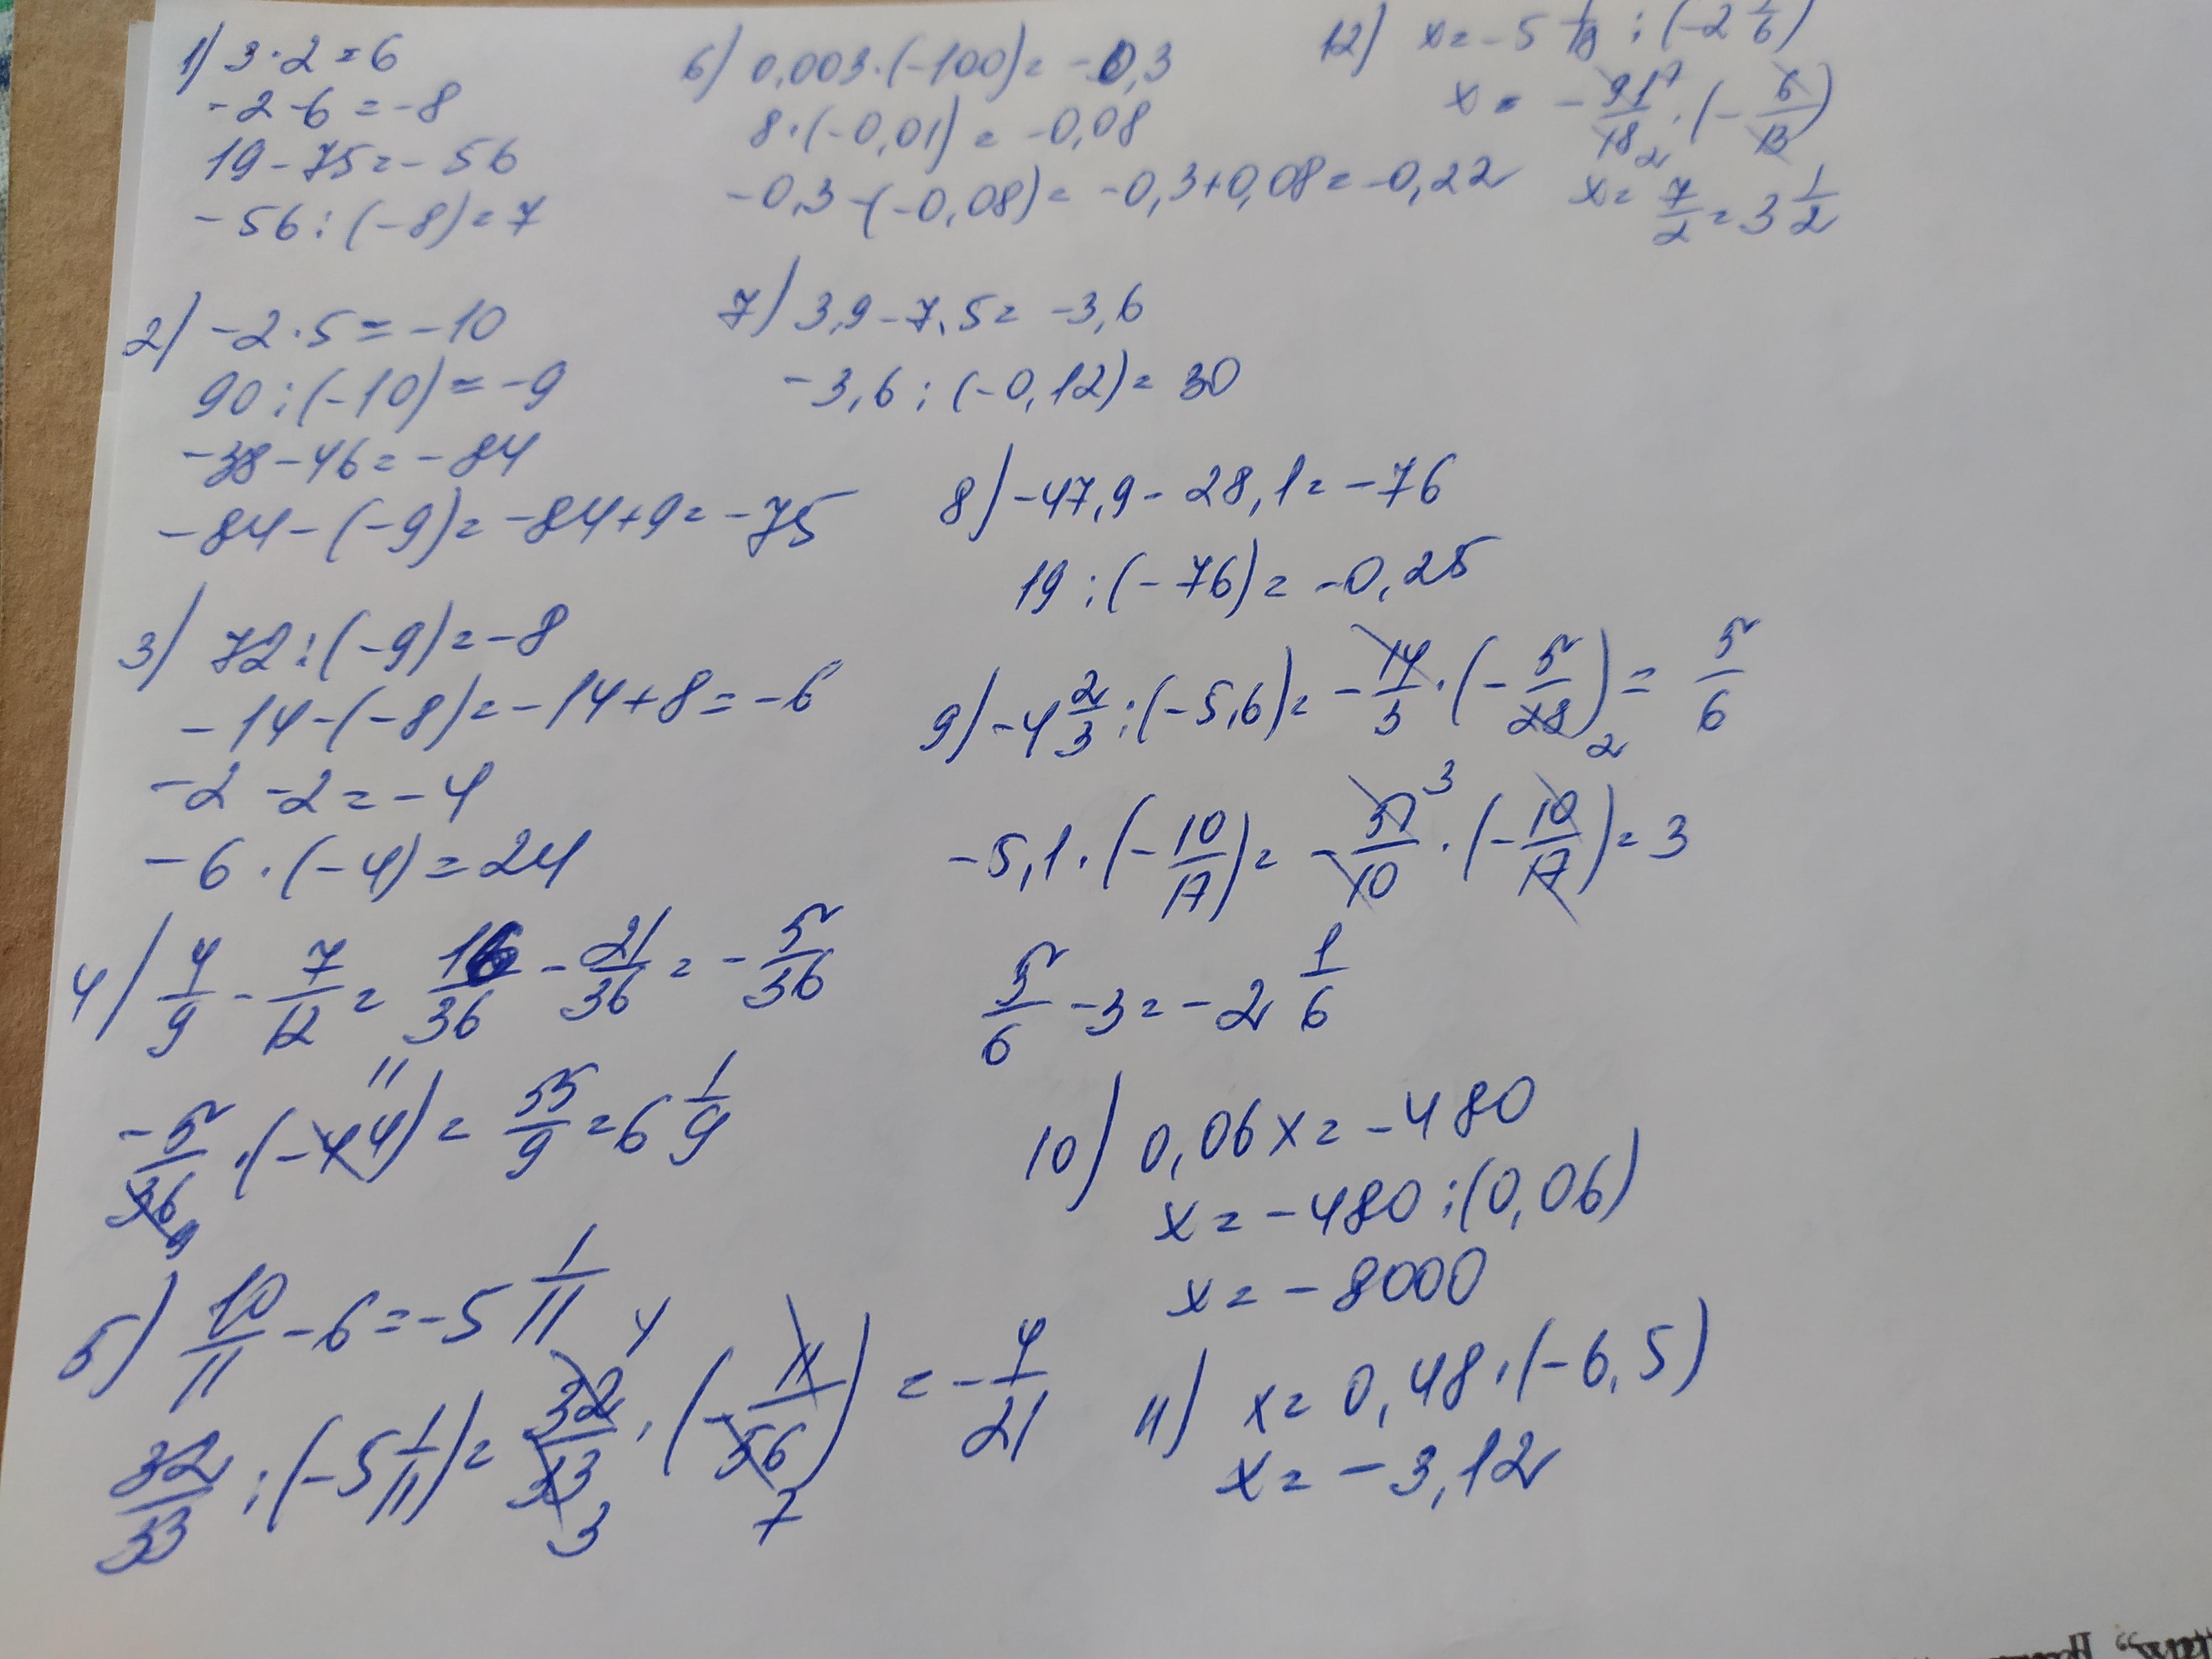 1) 3·2=6
-2-6=-8
19-75=-56
-56:(-8)=7
2) -2·5=-10
90:(-10)=-9
-38-46=-84
-84-(-9)=-84+9=-75
3) 72:(-9)=-8
-14-(-8)=-14+8=-6
-2-2=-4
-6·(-4)=24
4) 4/9 - 7/12 = 16/36 - 21/36 = -5/36
-5/36 9 ·(-44) 11 = 55/9 = 6 1/9
5) 10/11 - 6 = -5 1/11
32/33 : (-5 1/11) = 32 4/33 3 · (-11/56 7) = -4/21
6) 0,003·(-100)=-0,3
8·(-0,01)=-0,08
-0,3-(-0,08)=-0,3+0,08=-0,22
7) 3,9-7,5=-3,6
-3,6:(-0,12)=30
8) -47,9-28,1=-76
19:(-76)=-0,25
9) -4 2/3 : (-5,6) = -14/3 · (-5/28 2) = 5/6
-5,1·(-10/17) = -51 3/10 · (-10/17) = 3
5/6 - 3 = -2 1/6
10) 0,06x=-480
x=-480:(0,06)
x=-8000
11) x=0,48·(-6,5)
x=-3,12
12) x=-5 1/18 : (-2 1/6)
x = -91 7/18 2 · (-6/13)
x= 7/2 = 3 1/2